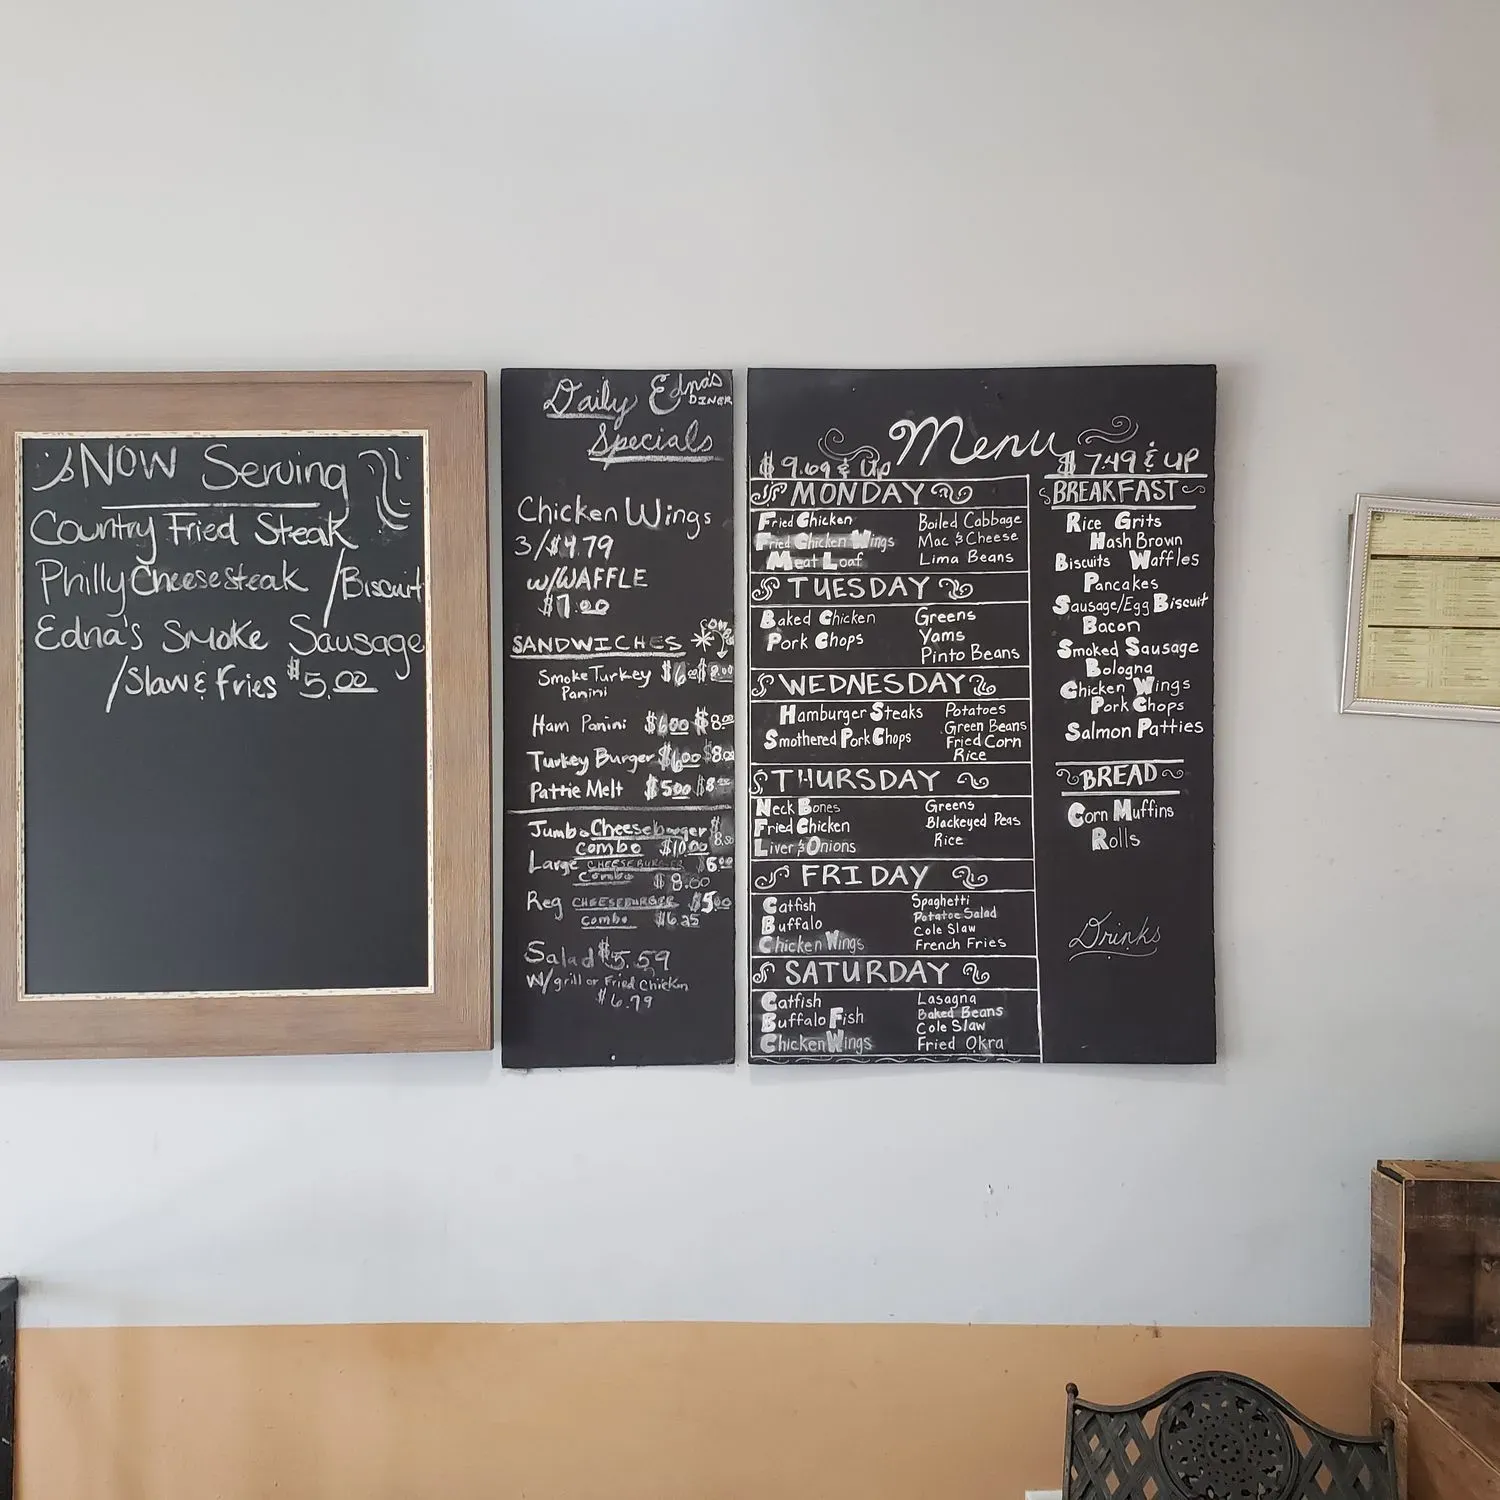 Now Serving
Country Fried Steak
Philly Cheesesteak /Biscuit
Edna's Smoke Sausage
/Slaw & Fries $5.00
Daily Edna's
DINER
Specials
Chicken Wings
3/$4.79
w/WAFFLE
$7.00
SANDWICHES
Smoke Turkey $6.00 $8.00
Panini
Ham Panini $6.00 $8.00
Turkey Burger $6.00 $8.00
Pattie Melt $5.00 $8.00
Jumbo Cheeseburger $8.50
Combo $10.00
Large CHEESEBURGER $6.00
Combo $8.00
Reg CHEESEBURGER $5.00
Combo $6.25
Salad $5.59
w/grill or Fried Chicken
$6.79
Menu
$9.69 & up
MONDAY
Fried Chicken
Fried Chicken Wings
Meat Loaf
Boiled Cabbage
Mac & Cheese
Lima Beans
TUESDAY
Baked Chicken
Pork Chops
Greens
Yams
Pinto Beans
WEDNESDAY
Hamburger Steaks
Smothered Pork Chops
Potatoes
Green Beans
Fried Corn
Rice
THURSDAY
Neck Bones
Fried Chicken
Liver & Onions
Greens
Blackeyed Peas
Rice
FRIDAY
Catfish
Buffalo
Chicken Wings
Spaghetti
Potatoe Salad
Cole Slaw
French Fries
SATURDAY
Catfish
Buffalo Fish
Chicken Wings
Lasagna
Baked Beans
Cole Slaw
Fried Okra
$7.49 & UP
BREAKFAST
Rice Grits
Hash Brown
Biscuits Waffles
Pancakes
Sausage/Egg Biscuit
Bacon
Smoked Sausage
Bologna
Chicken Wings
Pork Chops
Salmon Patties
BREAD
Corn Muffins
Rolls
Drinks